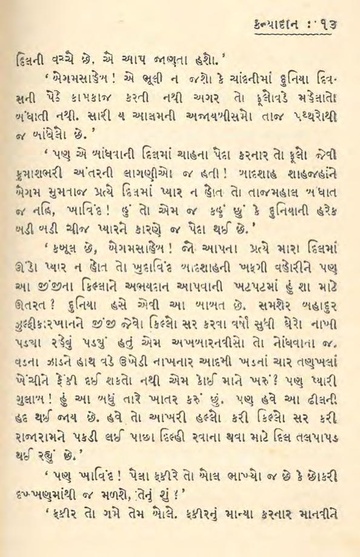 કન્યાદાન : ૧૩
દિલની વચ્ચે છે, એ આપ જાણતા હશો.'
'બેગમસાહેબ! એ ભૂલી ન જશો કે ચાંદનીમાં દુનિયા દિવ-
સની પેઠે કામકાજ કરતી નથી અગર તો ફૂલોવડે મડેલાતો
બંધાતી નથી. સારી ય આલમની અજાયબીસમો તાજ પથ્થરોથી
જ બાંધેલો છે.'
'પણ એ બાંધવાની દિલમાં ચાહના પેદા કરનાર તો ફૂલો જેવી
કુમાશભરી અંતરની લાગણીઓ જ હતી! બાદશાહ શાહજહાંને
બેગમ મુમતાજ પ્રત્યે દિલમાં પ્યાર ન હોત તો તાજમહાલ બંધાત
જ નહિ, ખાવિંદ! હું તો એમ જ કહું છું કે દુનિયાની હરેક
બડી બડી ચીજ પ્યારને કારણે જ પેદા થઈ છે.'
'કબૂલ છે, બેગમસાહેબ! જો આપના પ્રત્યે મારા દિલમાં
ઊંડો પ્યાર ન હોત તો ખુદાવિંદ બાદશાહની ખફગી વહોરીને પણ
આ જીંજીના કિલ્લાને અભયદાન આપવાની ખટપટમાં હું શા માટે
ઊતરત? દુનિયા હસે એવી આ બાબત છે. સમશેર બહાદુર
ઝુલ્ફીકારખાનને જીંજી જેવો કિલ્લો સર કરવા વર્ષો સુધી ઘેરો નાખી
પડ્યા રહેવું પડ્યું હતું એમ અખબારનવીસો તો નોંધવાના જ.
વડના ઝાડને હાથ વડે ઉખેડી નાખનાર આદમી ખડનાં ચાર તણખલાં
ખેંચીને ફેંકી દઈ શકતો નથી એમ કોઈ માને ખરું? પણ પ્યારી
ગુલાબ! હું આ બધું તારે ખાતર કરું છું, પણ હવે આ ઢીલની
હદ થઈ જાય છે. હવે તો આખરી હલ્લો કરી કિલ્લો સર કરી
રાજારામને પકડી લઈ પાછા દિલ્હી રવાના થવા માટે દિલ તલપાપડ
થઈ રહ્યું છે.'
'પણ ખાવિંદ! પેલા ફકીરે તો બોલ ભાખ્યો જ છે કે છોકરી
દખ્ખણમાંથી જ મળશે, તેનું શું?'
'ફકીર તો ગમે તેમ બોલે. ફકીરનું માન્યા કરનાર માનવીને